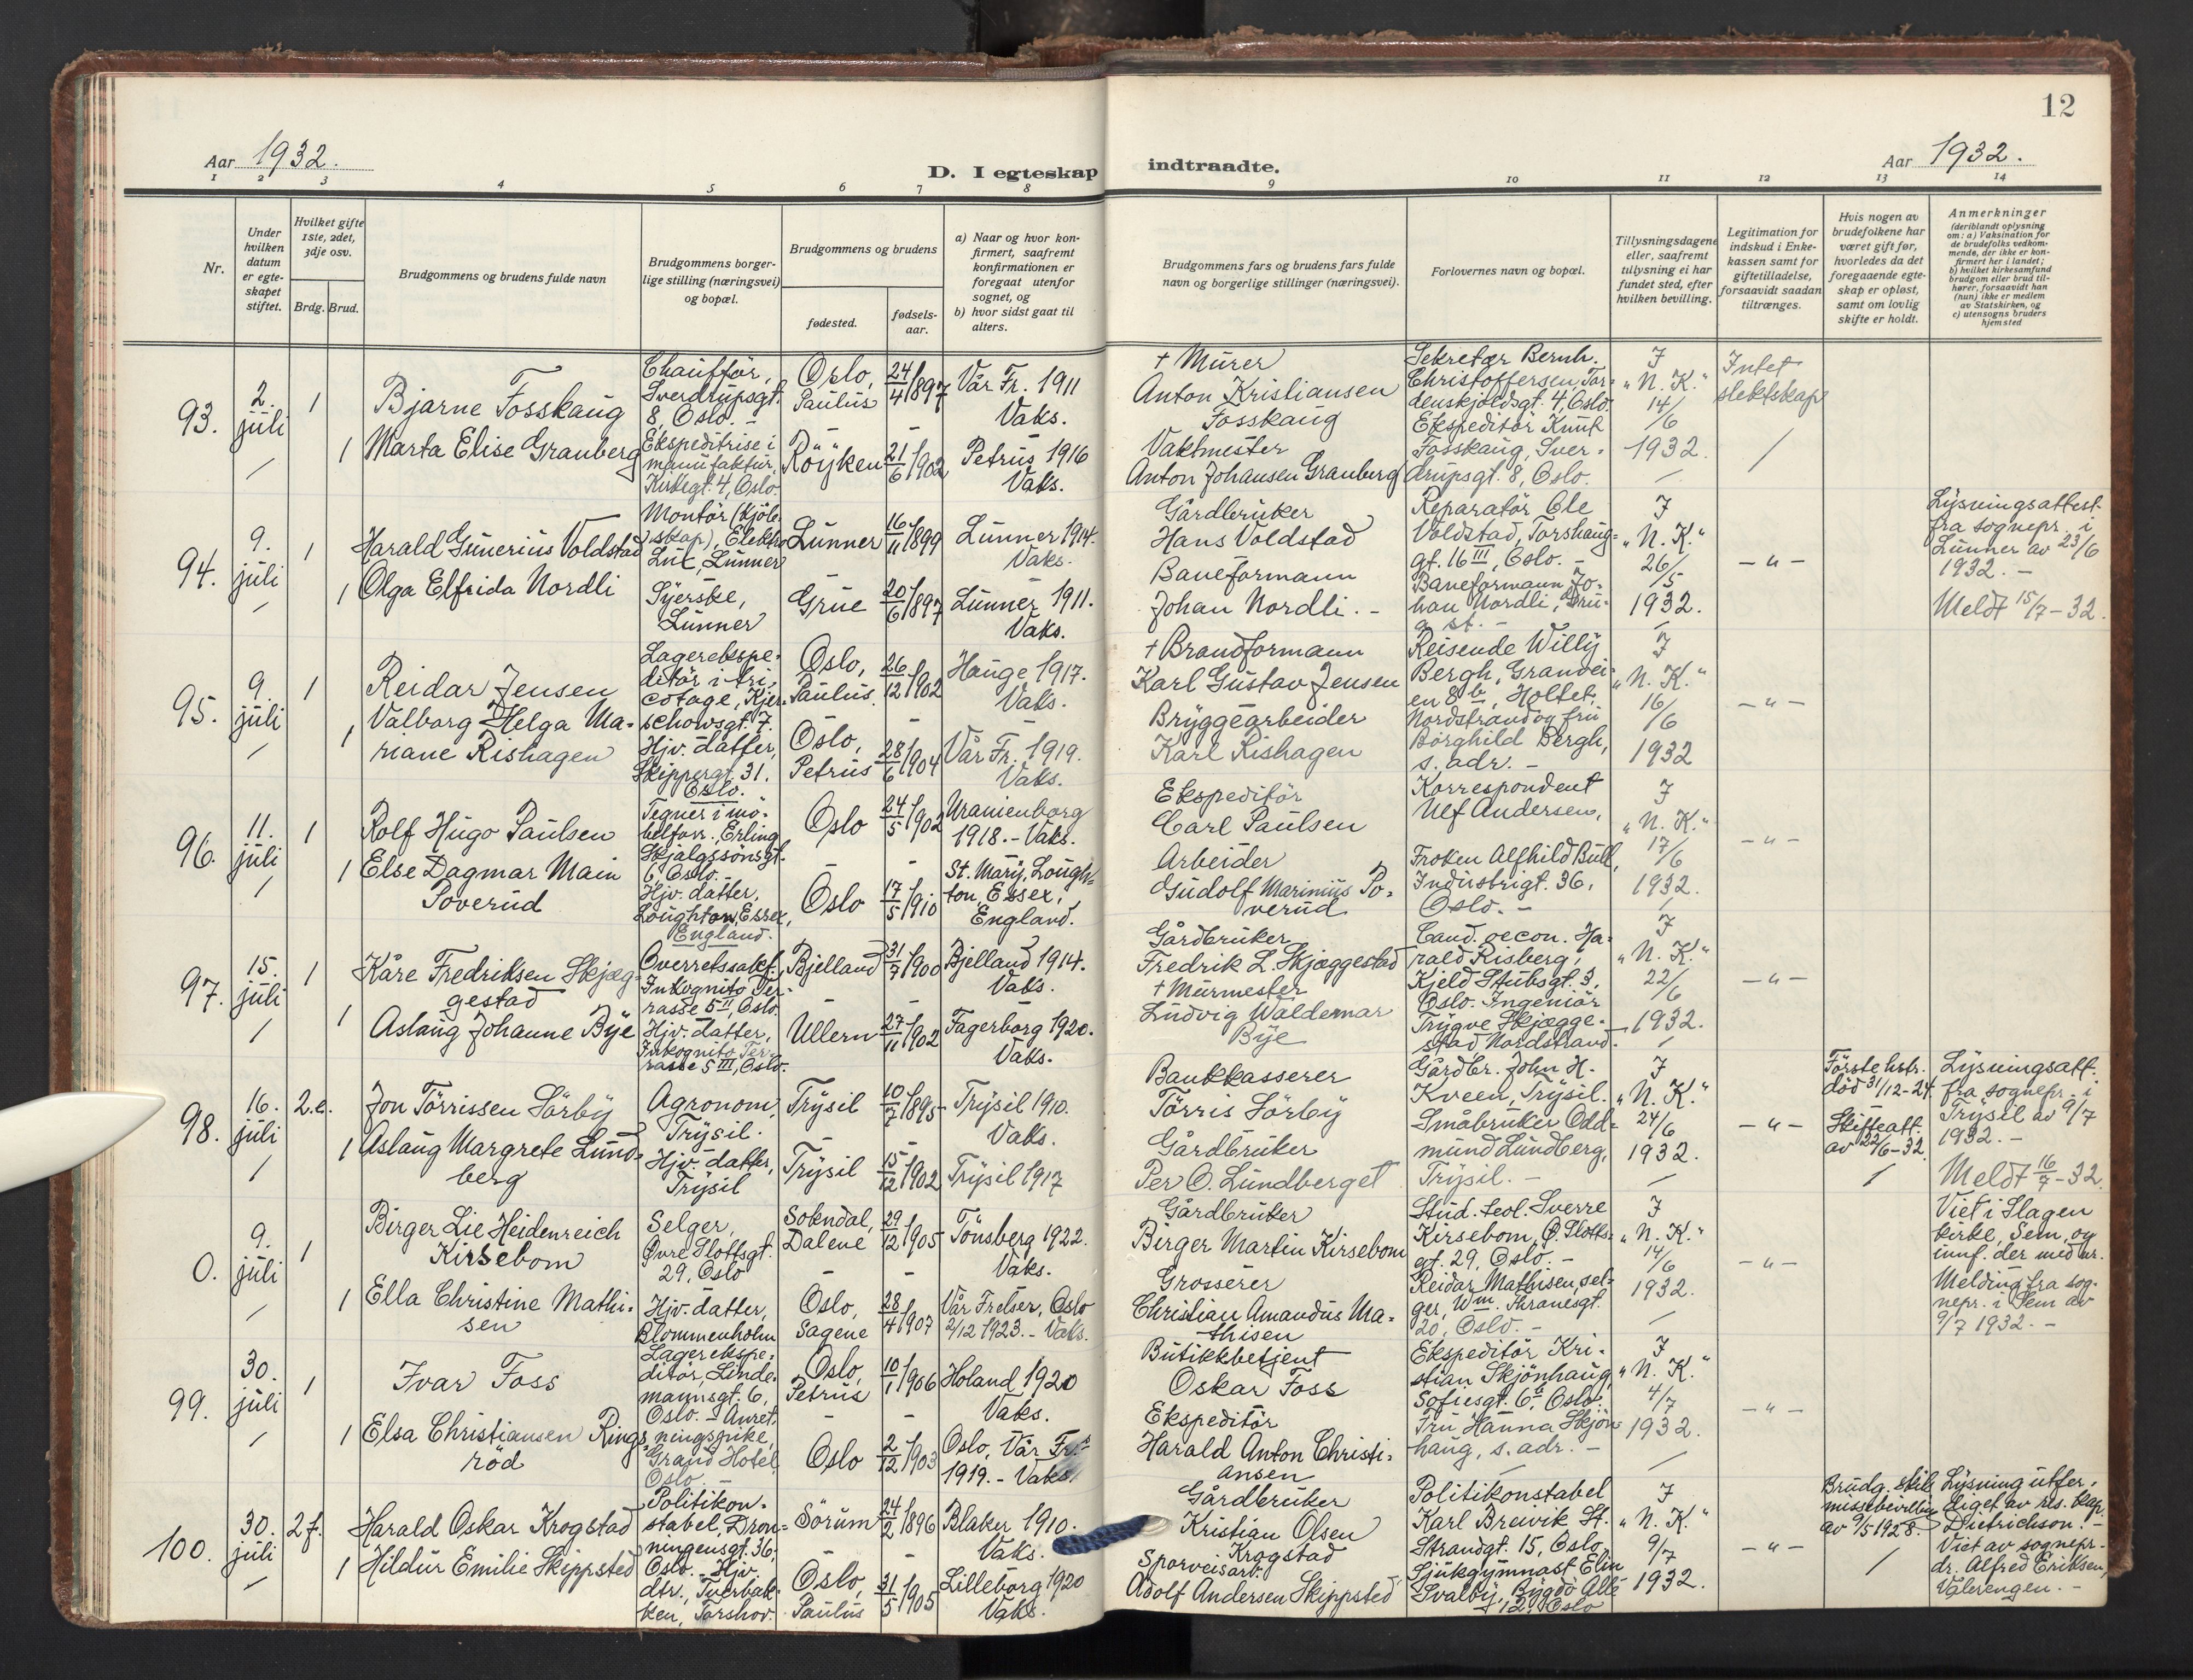 12
Aar 1932.
D. I egteskap indtraadte.
Aar 1932.
1 2 3 4 5 6 7 8 9 10 11 12 13 14
Nr.
Under
hvilken
datum
er egte-
skapet
stiftet.
Hvilket gifte
1ste, 2det,
3dje osv.
Brdg. Brud.
Brudgommens og brudens fulde navn
Brudgommens borger-
lige stilling (næringsvei)
og bopæl.
Brudgommens og brudens
fødested.
fødsels-
aar.
a) Naar og hvor kon-
firmert, saafremt
konfirmationen er
foregaat utenfor
sognet, og
b) hvor sidst gaat til
alters.
Brudgommens fars og brudens fars fulde
navn og borgerlige stillinger (næringsvei).
Forlovernes navn og bopæl.
Tillysningsdagene
eller, saafremt
tillysning ei har
fundet sted, efter
hvilken bevilling.
Legitimation for
indskud i Enke-
kassen samt for
giftetilladelse,
forsaavidt saadan
tiltrænges.
Hvis nogen av
brudefolkene har
været gift før,
hvorledes da det
foregaaende egte-
skap er opløst,
samt om lovlig
skifte er holdt.
Anmerkninger
(deriblandt oplysning
om: a) Vaksination for
de brudefolks vedkom-
mende, der ikke er kon-
firmert her i landet;
b) hvilket kirkesamfund
brudgom eller brud til-
hører, forsaavidt han
(hun) ikke er medlem
av Statskirken, og
c) utensogns bruders
hjemsted
93.
2.
juli
1
Bjarne Fosskaug
Chauffør,
Sverdrupsgt.
8, Oslo. -
Oslo,
Paulus
24/4 1897
Vår Fr. 1911
Vaks.
1
Marta Elise Granberg
Ekspeditrise i
manufaktur,
Kirkegt. 4, Oslo.
Röyken
21/6 1902
Petrus 1916
Vaks.
+ Murer
Anton Kristiansen
Fosskaug
Vaktmester
Anton Johansen Granberg
Sekretær Bernh.
Christoffersen, Tor-
denskjoldsgt. 4, Oslo.
Ekspeditör Knut
Fosskaug, Sver-
drupsgt. 8, Oslo.
I
"N. K."
14/6
1932.
Intet
slektskap
94.
9.
juli
1
Harald Gunerius Voldstad
Montör (kjöle-
skap), Elektro
Lux, Lunner
Lunner
16/11 1899
Lunner 1914.
Vaks.
1
Olga Elfrida Nordli
Syerske,
Lunner
Grue
20/6 1897
Lunner 1911.
Vaks.
Gårdbruker
Hans Voldstad
Baneformann
Johan Nordli. -
Reparatör Ole
Voldstad, Torshaug-
gt. 16 III, Oslo. -
Baneformann Jo-
han Nordli, Gru-
a st. -
I
"N. K."
26/5
1932.
- " -
Lysningsattest
fra sognepr. i
Lunner av 23/6
1932. -
Meldt 15/7 - 32.
95.
9.
juli
1
Reidar Jensen
Lagerekspe-
ditör i tri-
cotage, Kjer-
schowsgt. 7.
Oslo,
Paulus.
26/12 1902
Hauge 1917.
Vaks.
1
Valborg Helga Ma-
riane Rishagen
Hjv. datter,
Skippergt. 31,
Oslo.
Oslo,
Petrus
28/6 1904
Vår Fr. 1919.
Vaks.
+ Brandformann
Karl Gustav Jensen
Bryggearbeider
Karl Rishagen
Reisende Willy
Bergh, Granvei-
en 8b, Holtet,
Nordstrand og fru
Borghild Bergh,
s. adr. -
I
"N. K."
16/6
1932
- " -
96.
11.
juli
1
Rolf Hugo Paulsen
Tegner i mö-
belforr., Erling
Skjalgssönsgt.
6, Oslo. -
Oslo
24/5 1902
Uranienborg
1918. - Vaks.
1
Else Dagmar Main
Poverud
Hjv. datter,
Loughton, Essex,
England.
Oslo
17/5 1910
St. Mary, Lough-
ton, Essex,
England.
Ekspeditör
Carl Paulsen
Arbeider
Gudolf Marinius Po-
verud
Korrespondent
Ulf Andersen,
Froken Alfhild Bull,
Industrigt. 36,
Oslo. -
I
"N. K."
17/6
1932.
- " -
97.
15.
juli
1
Kåre Fredriksen Skjæg-
gestad
Overretssakf.,
Inkognito Ter-
rasse 5 II, Oslo.
Bjelland
31/7 1900
Bjelland 1914.
Vaks.
1
Aslaug Johanne Bye
Hjv. datter,
Inkognito Ter-
rasse 5 III, Oslo.
Ullern
27/11 1902
Fagerborg 1920.
Vaks.
Gårdbruker
Fredrik L. Skjæggestad
+ Murmester
Ludvig Waldemar
Bye
Cand. oecon. Ha-
rald Risberg,
Kjeld Stubsgt. 3,
Oslo. Ingeniör
Trygve Skjægge-
stad Nordstrand.
I
"N. K."
22/6
1932.
- " -
98.
16.
juli
2.e.
Jon Törrissen Sörby
Agronom,
Trysil.
Trysil
10/7 1895
Trysil 1910.
Vaks.
1
Aslaug Margrete Lund-
berg
Hjv. datter,
Trysil
Trysil
15/12 1902
Trysil 1917
Bankkasserer
Törris Sörby
Gårdbruker
Per O. Lundberget
Gårdbr. John H.
Kveen, Trysil.
Småbruker Odd-
mund Lundberg,
Trysil. -
I
"N. K."
24/6
1932.
- " -
Förste hstr.
död 31/12 - 24.
Skifteatt.
av 22/6 - 32.
Lysningsatt.
fra sognepr. i
Trysil av 9/7
1932. -
Meldt 16/7 - 32.
0.
9.
juli
1
Birger Lie Heidenreich
Kirsebom
Selger,
Øvre Slottsgt.
29, Oslo
Sokndal,
Dalene
29/12 1905
Tönsberg 1922.
Vaks.
1
Ella Christine Mathi-
sen
Hjv. datter,
Blommenholm
Oslo,
Sagene
28/4 1907
Vår Frelser, Oslo
2/12 1923. - Vaks.
Gårdbruker
Birger Martin Kirsebom
Grosserer
Christian Amandus Ma-
thisen
Stud. teol. Sverre
Kirsebom, Ø. Slotts-
gt. 29, Oslo. -
Reidar Mathisen, sel-
ger, Wm. Thranesgt.
20, Oslo. -
I
"N. K."
14/6
1932.
- " -
Viet i Slagen
kirke, Sem, og
innf. der med nr.
Melding fra sog-
nepr. i Sem av
9/7 1932. -
99.
30.
juli
1
Ivar Foss
Lagerekspe-
ditör, Linde-
mannsgt. 6,
Oslo. - Anret-
Oslo,
Petrus
10/1 1906
Holand 1920
Vaks.
1
Elsa Christiansen Rings-
röd
ningspike,
Grand Hotel,
Oslo. -
Oslo
2/12 1903
Oslo, Vår Fr.
1919. - Vaks.
Butikkbetjent
Oskar Foss
Ekspeditör
Harald Anton Christi-
ansen
Ekspeditör Kri-
stian Skjönhaug,
Sofiesgt. 6, Oslo.
Fru Hanna Skjön-
haug, s. adr. -
I
"N. K."
4/7
1932.
- " -
100.
30.
juli
2 f.
Harald Oskar Krogstad
Politikon-
stabel, Dron-
ningensgt. 36,
Oslo. - Hjv.
Sörum
24/2 1896
Blaker 1910.
Vaks.
1
Hildur Emilie Skippsted
dtr., Tverbak-
ken, Torshov.
Oslo,
Paulus
31/5 1905
Lilleborg 1920
Vaks.
Gårdbruker
Kristian Olsen
Krogstad
Sporveisarb.
Adolf Andersen Skippsted
Politikonstabel
Karl Breivik St.
Strandgt. 15, Oslo,
Sjukgymnast Elin
Svalby, Bygdö Allé
12, Oslo
I
"N. K."
9/7
1932.
- " -
Brudg. skils-
missebevilling
av 9/5 1928.
Lysning utfer-
diget av res. kap.
Dietrichson. -
Viet av sognepr.
dr. Alfred Eriksen,
Vålerengen. -